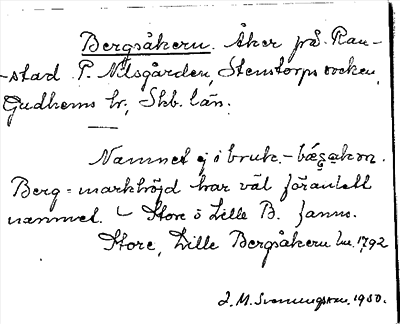 Bergsåkern. Åker på Ran-
-stad P. Nilsgården, Stenstorps socken,
Gudhems hr, Skb. län.
Namnet ej i bruk. - bæsakon.
Berg = markhöjd har väl föranlett
namnet. - Store o Lille B. fanns.
Store, Lille Bergsåkern Lm. 1792
J. M. Svenningson. 1930.